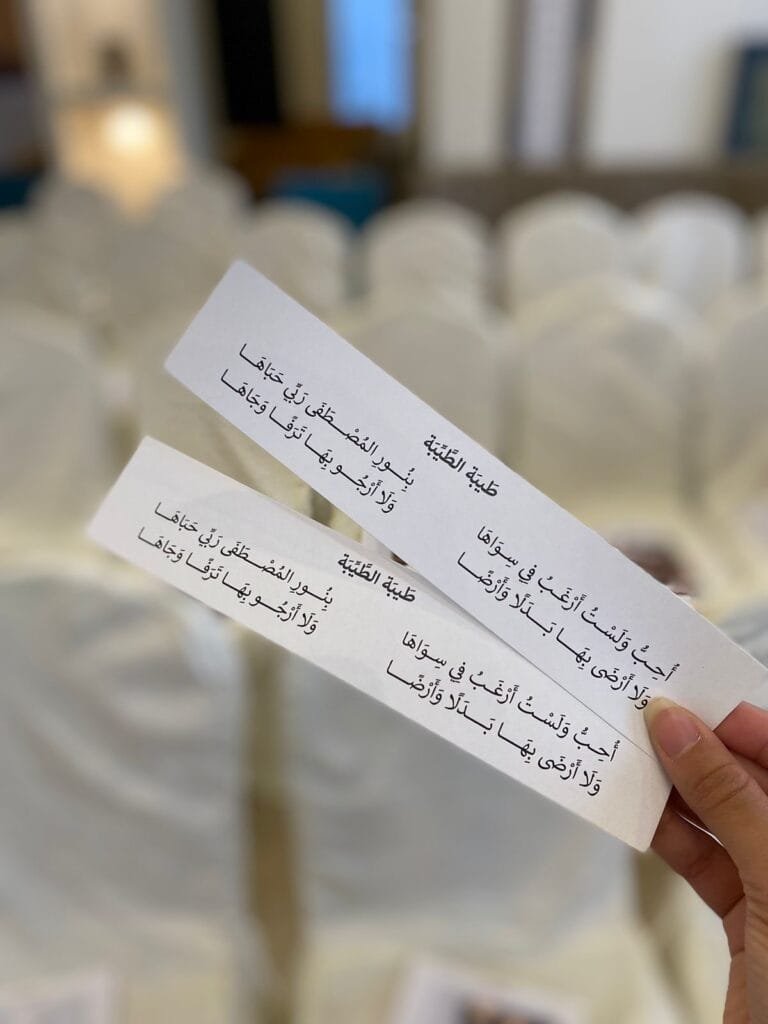 طَيبَة الطَّيِّبَة
أُحِبُّ وَلَسْتُ أَرْغَبُ فِي سِوَاهَا بِنُورِ المُصْطَفَى رَبِّي حَبَاهَا
وَلَا أَرْضَى بِهَا بَدَلًا وَأَرْضًا وَلَا أَرْجُو بِهَا تَرَفًا وَجَاهَا
طَيبَة الطَّيِّبَة
أُحِبُّ وَلَسْتُ أَرْغَبُ فِي سِوَاهَا بِنُورِ المُصْطَفَى رَبِّي حَبَاهَا
وَلَا أَرْضَى بِهَا بَدَلًا وَأَرْضًا وَلَا أَرْجُو بِهَا تَرَفًا وَجَاهَا